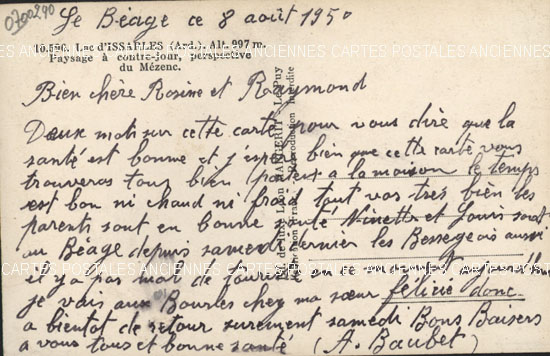 0700290
Le Béage ce 8 août 1950
10.590. Lac d'ISSARLES (Ard.) Alt. 997 m.
Paysage à contre-jour, perspective
du Mézenc.
CARTES POSTALES ANCIENNES
Bien chère Rosine et Raymond
Deux mots sur cette carte pour vous dire que la
santé est bonne et j'espère bien que cette carte vous
trouveras tous bien portent a la maison le temps
est bon ni chaud ni froid tout vos très bien les
parents sont en bonne santé Ninette et Louis sont
au Béage depuis samedi dernier les Bessegeois aussi
il y a pas mal de
je vais aux Bourles chez ma sœur félicie donc
a bientot de retour surement samedi Bons Baisers
a vous tous et bonne santé (A. Baubet)
Margerit
Reproduction interdite